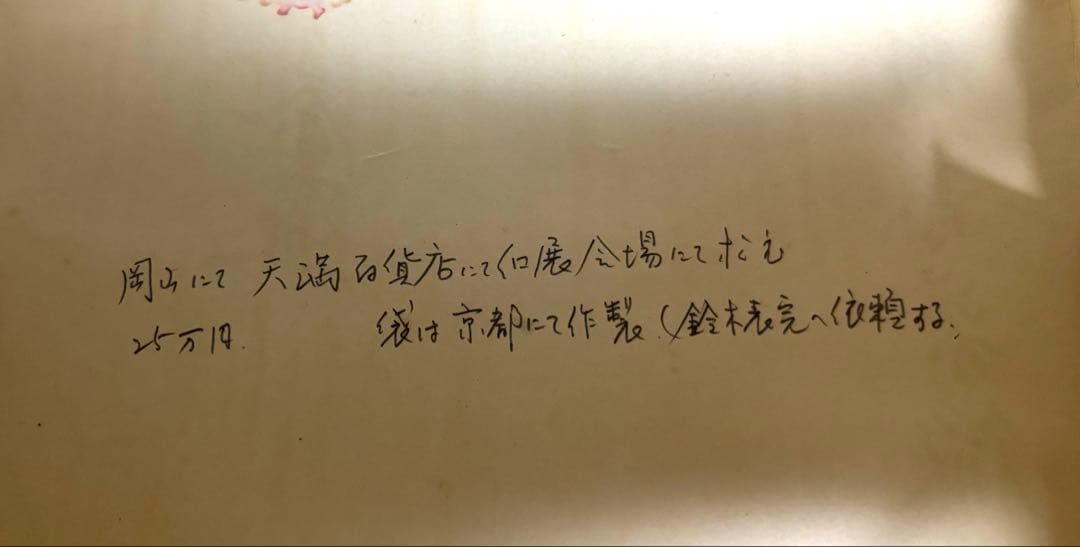 岡山にて 天満百貨店にて 展会場にて求む
25万円. 袋は京都にて作製.(鈴木表完へ依頼する.